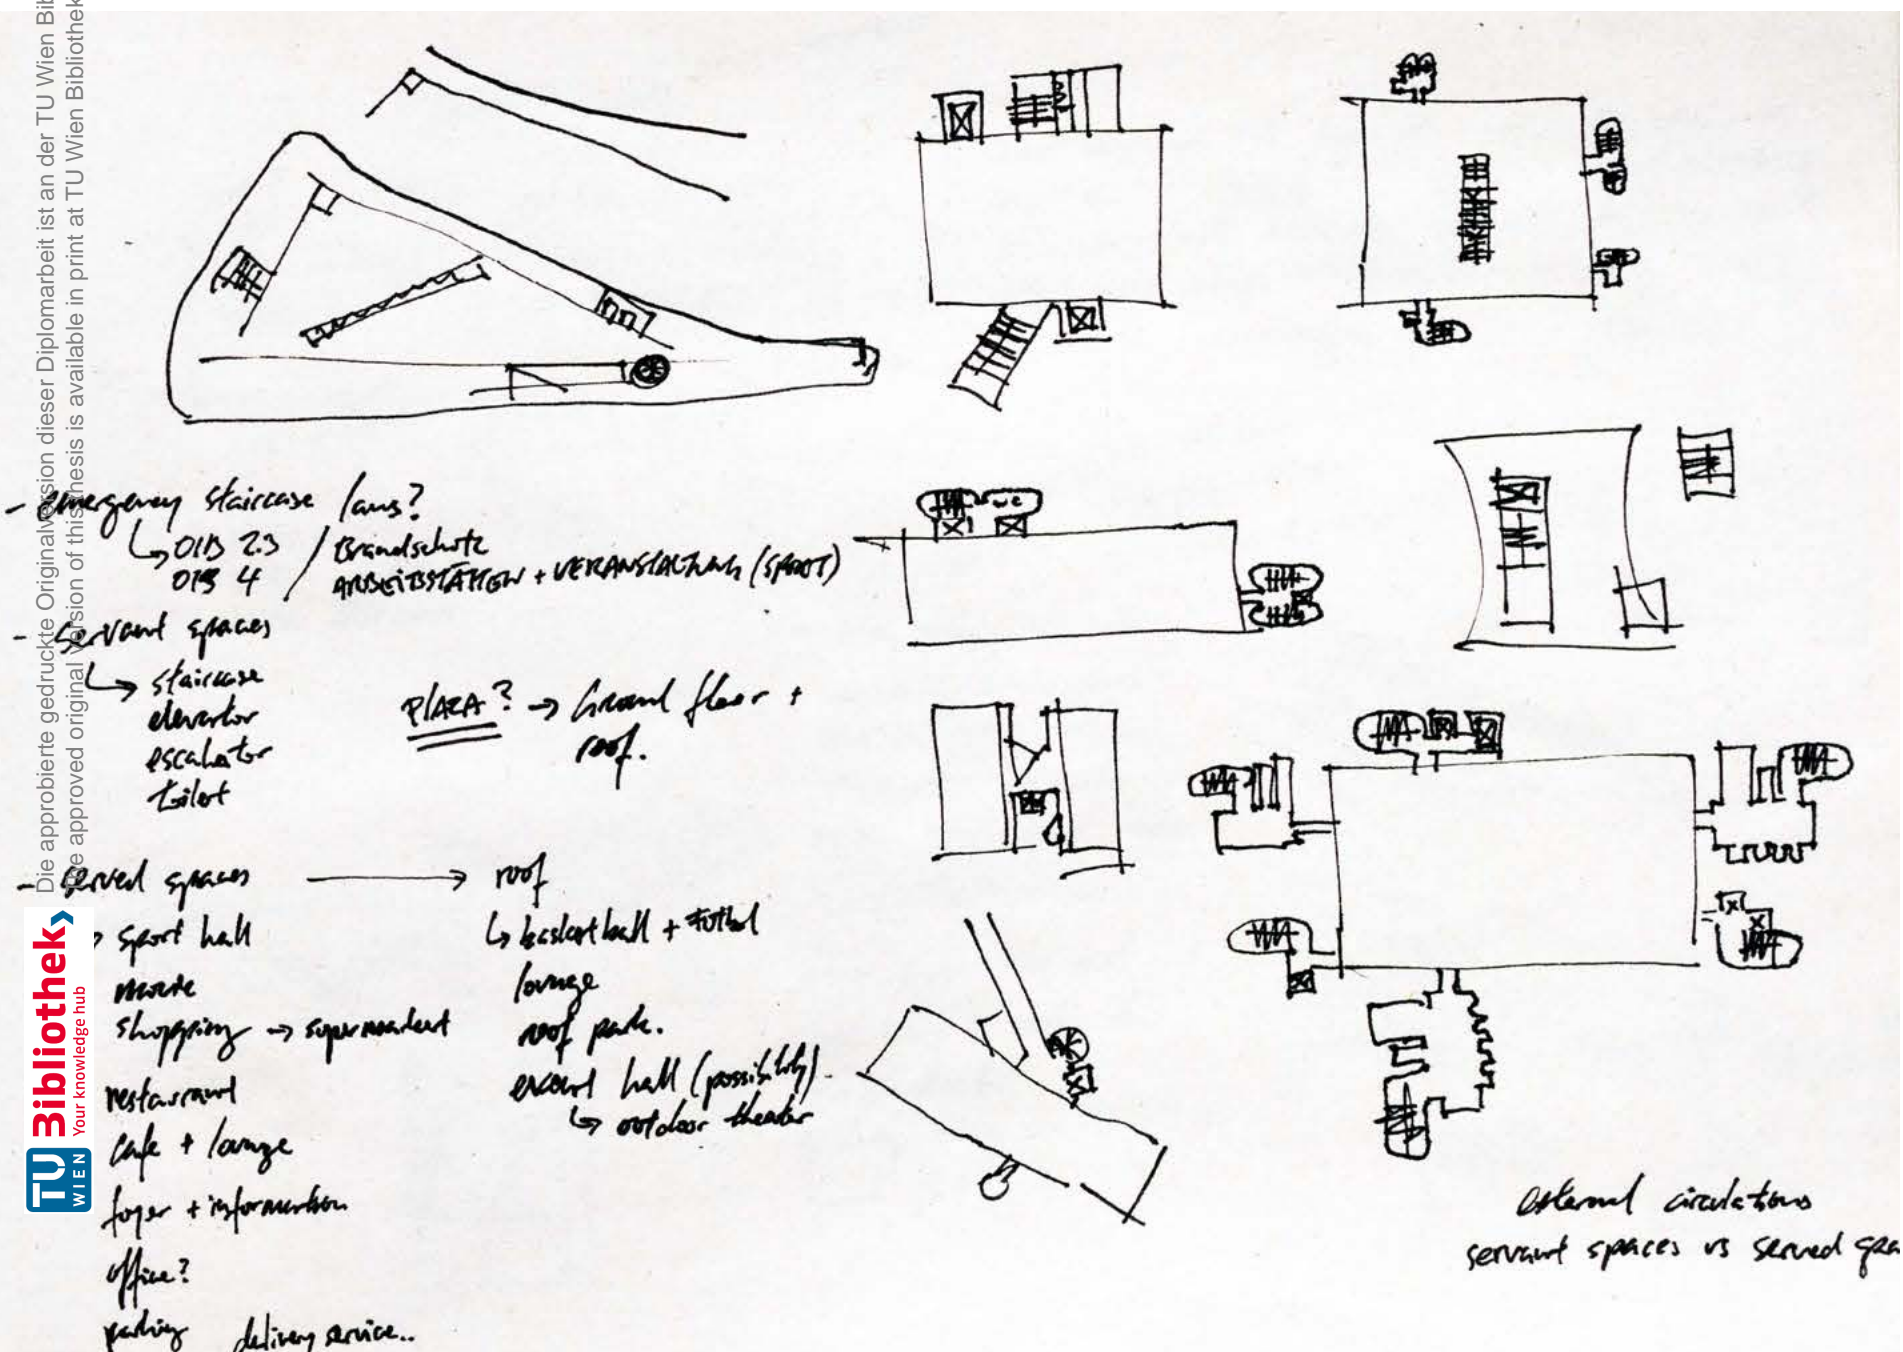 Die approbierte gedruckte Originalversion dieser Diplomarbeit ist an der TU Wien Bib
The approved original version of this thesis is available in print at TU Wien Bibliothek
TU WIEN Bibliothek
Your knowledge hub
- emergency staircase laws?
OIB 2.3 / Brandschutz
OIB 4 / ARBEITSSTÄTTEN + VERANSTALTUNG (SPORT)
- servant spaces
staircase
elevator
escalator
toilet
PLAZA? → Ground floor +
roof.
- served spaces → roof
sport hall
movie
shopping → supermarket
restaurant
cafe + lounge
foyer + information
office?
parking delivery service..
basketball + futbol
lounge
roof park.
hall (possibility)
outdoor theater
WC
external circulations
servant spaces vs served spa